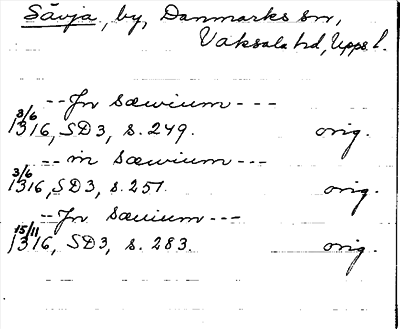 Sävja, by, Danmarks sn,
Vaksala hd, Upps. l.
-- Jn Sæwium ---
3/6
1316, SD3, s. 249. orig.
-- in Sæwium ---
3/6
1316, SD3, s. 251. orig.
-- Jn Sæuium ---
15/11
1316, SD3, s. 283. orig.